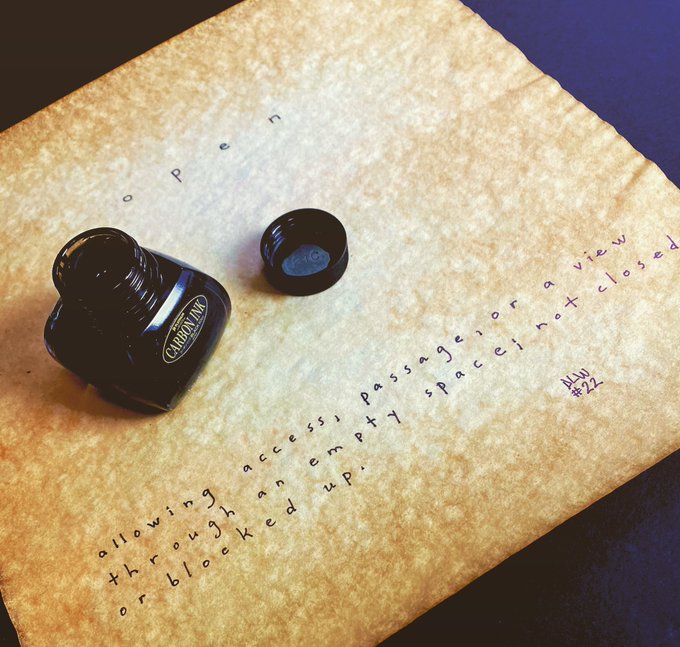 open
CARBON INK
allowing access, passage, or a view
through an empty space; not closed
or blocked up.
DLW
#22